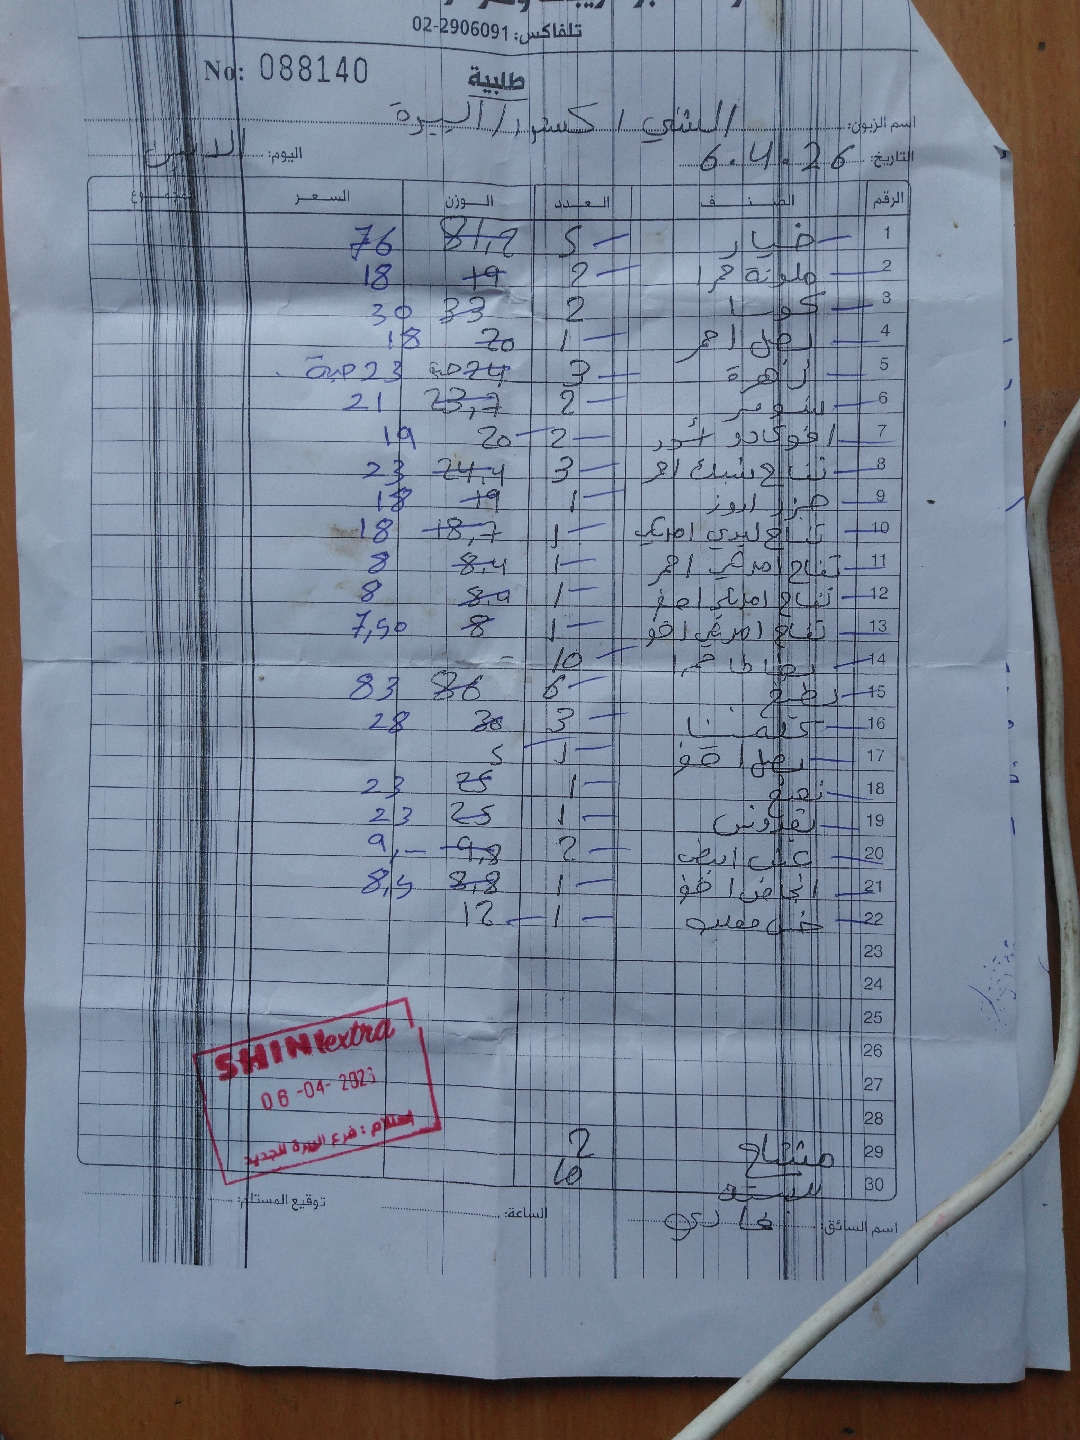 تلفاكس: 02-2906091
No: 088140
طلبية
اسم الزبون: الشني / اكسترا / البيرة
التاريخ: 6.4.26 اليوم:
الرقم الصنف العدد الوزن السعر
1 خيار 5 81,2 76
2 ملونة حمرا 2 19 18
3 كوسا 2 33 30
4 بصل احمر 1 20 18
5 زهرة 3 24 حبة 23 حبة
6 2 23,7 21
7 افوكادو 2 20 19
8 تفاح احمر 3 24,4 23
9 جزر 1 19 18
10 تفاح ليدي امريكي 1 18,7 18
11 تفاح امريكي احمر 1 8,4 8
12 تفاح امريكي اصفر 1 8,9 8
13 تفاح امريكي اخضر 1 8 7,50
14 بطاطا حمرا 10 -
15 بطيخ 6 86 83
16 كلمنتينا 3 30 28
17 بصل اخضر 1 5
18 نعنع 1 25 23
19 بقدونس 1 25 23
20 عنب ابيض 2 9,8 9,-
21 اجاص اخضر 1 8,8 8,5
22 خس 1 12
23
24
25
26
27
28
29 مشتاح 2
30 بسته 10
SHINI extra
06-04-2026
إستلام : فرع البيرة الجديد
اسم السائق: فادي الساعة: توقيع المستلم: